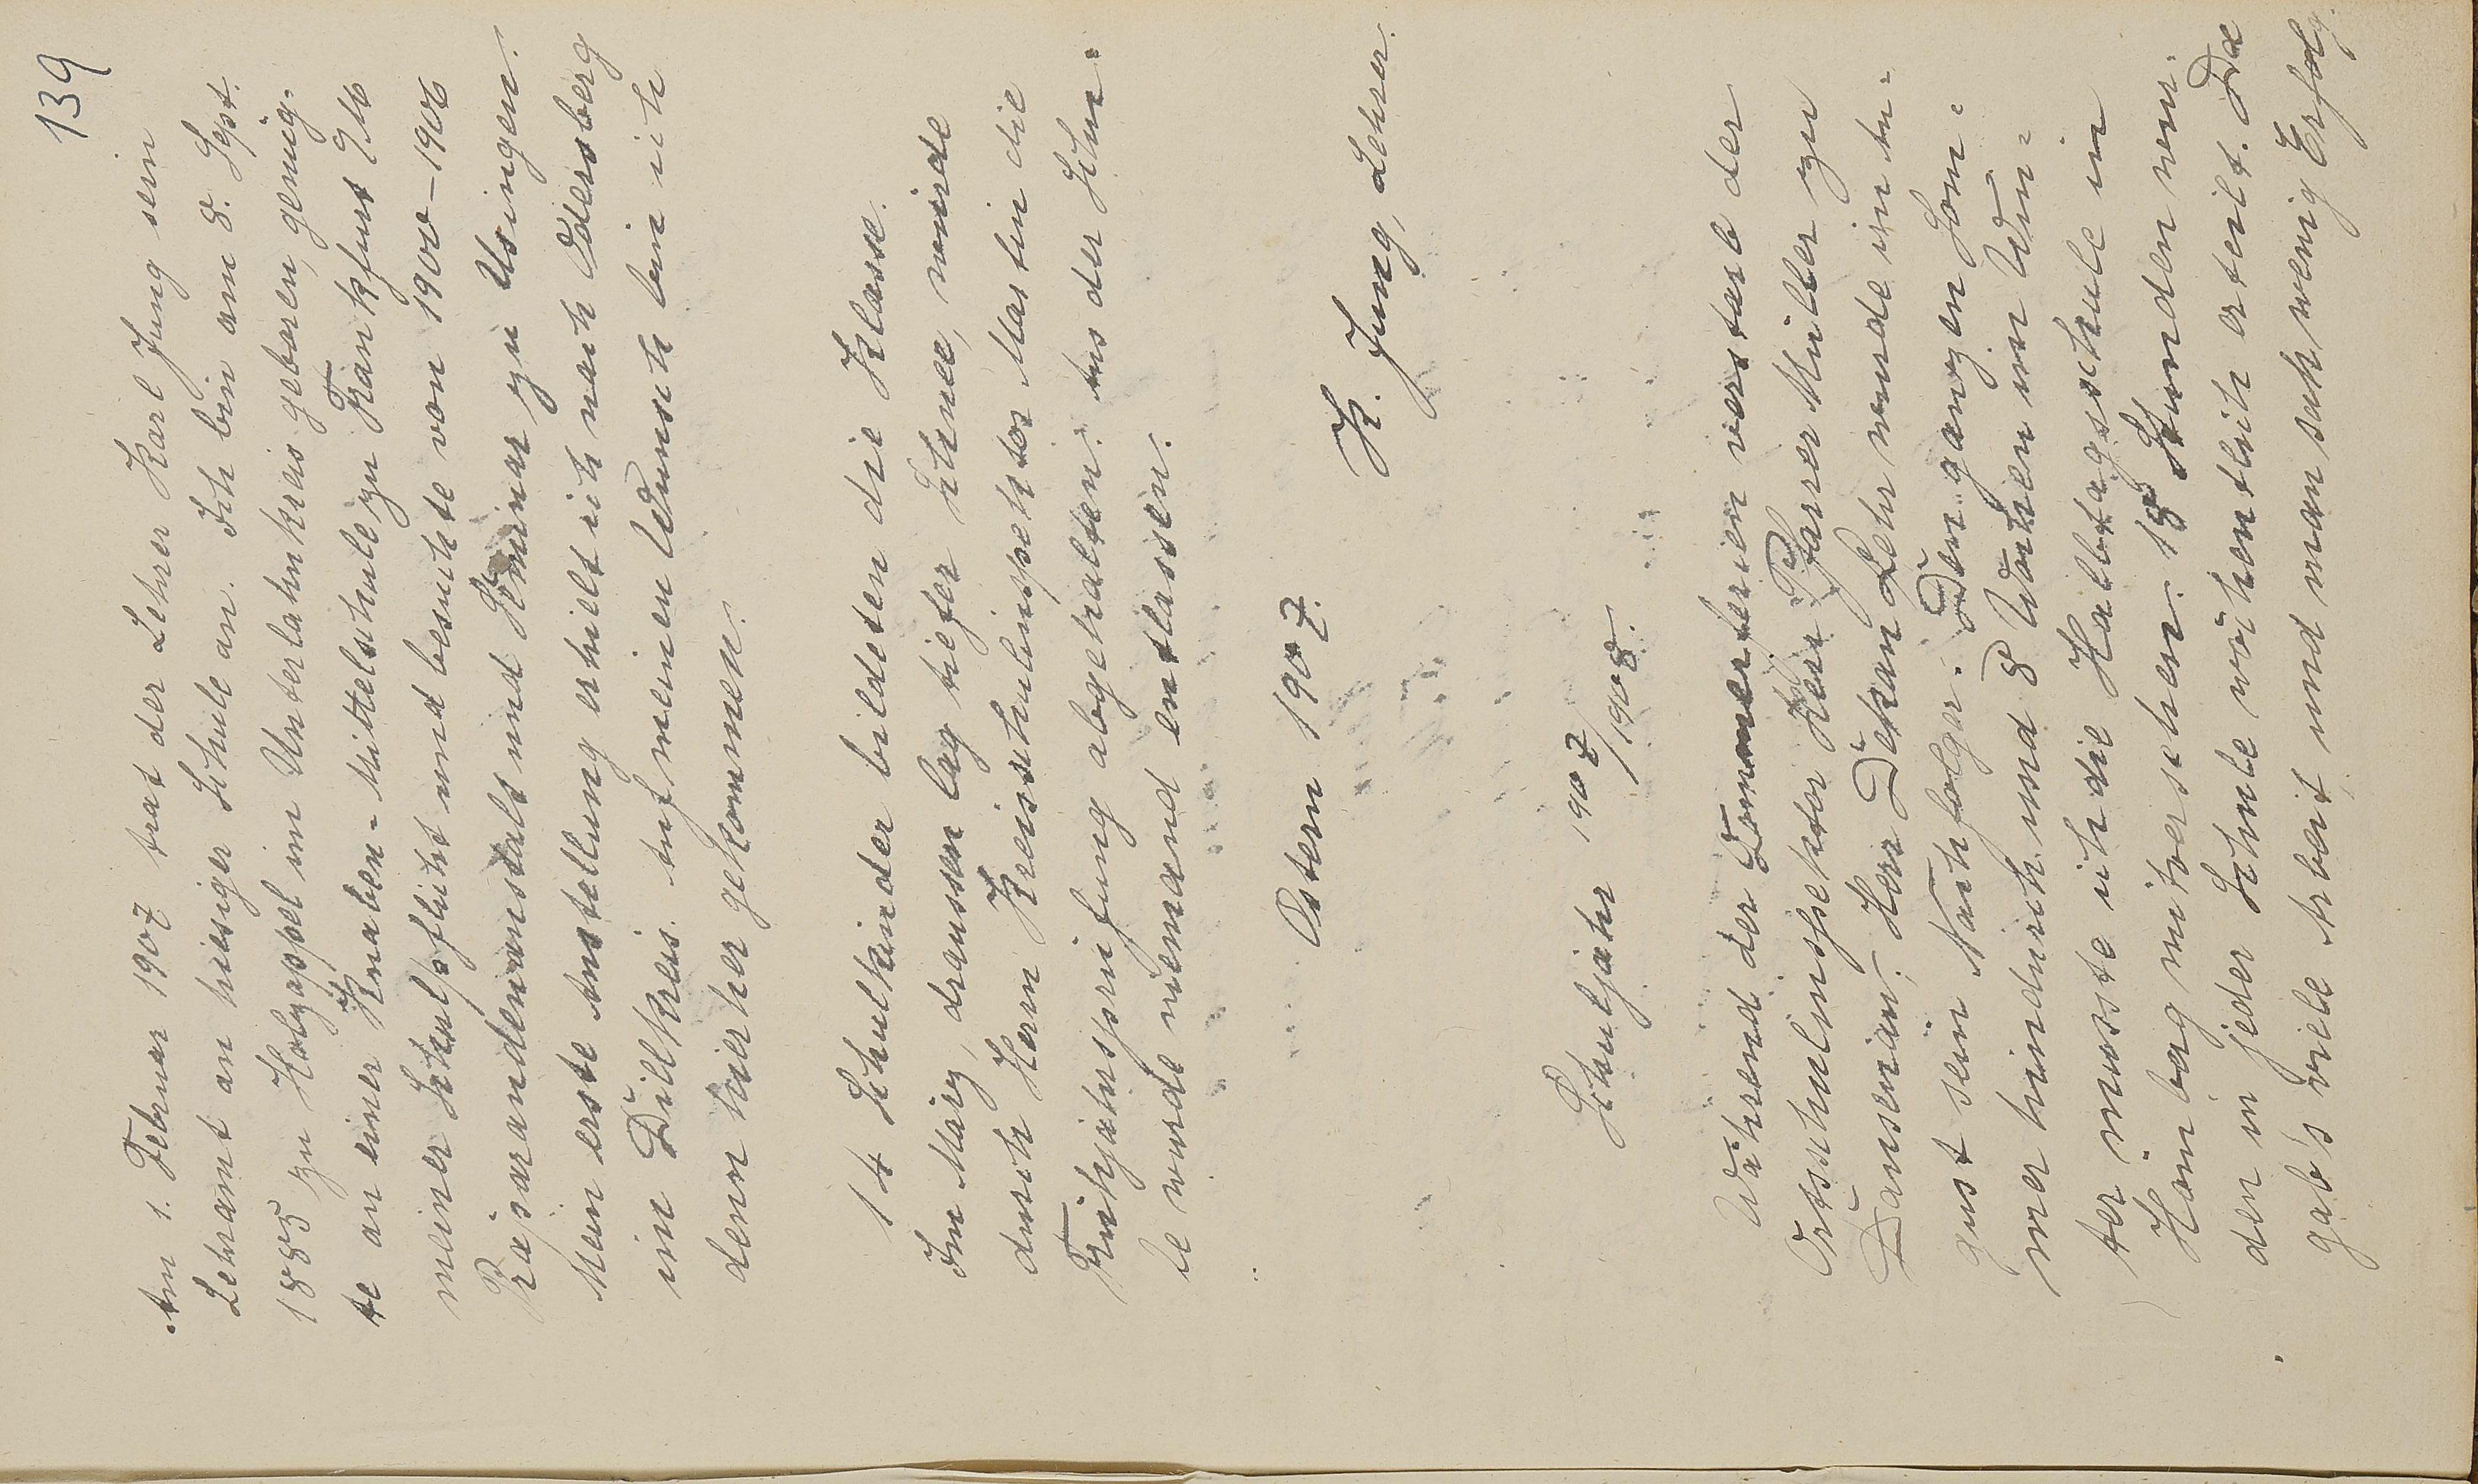 139
Am 1. Februar 1907 trat der Lehrer Karl Jung sein
Lehramt an hiesiger Schule an. Ich bin am 8. Sept.
1885 zu Holzappel im Unterlahnkreis geboren, genüg-
te an einer Knaben-Mittelschule zu Frankfurt 9/M
meiner Schulpflicht und besuchte von 1900–1906
Präparandenanstalt und Seminar zu Usingen.
Mein erste Anstellung erhielt ich nach Odersberg
im Dillkreis. Auf meinen Wunsch bin ich
denn hierher gekommen.
14 Schulkinder bildeten die Klasse.
Im März, draussen lag tiefer Schnee, wurde
durch Herrn Kreisschulinspektor Martin die
Frühjahrsprüfung abgehalten. Aus der Schu-
le wurde niemand entlassen.
Ostern 1907.
K. Jung, Lehrer.
Schuljahr 1907/1908.
Während der Sommerferien verstarb der
Ortsschulinspektor Herr Pfarrer Müller zu
Dausenau. Herr Dekan Lehr wurde im Au-
gust sein Nachfolger. Den ganzen Som-
mer hindurch und 8 Wochen im Win-
ter musste ich die Halbtagsschule in
Hömberg mitversehen. 18 Stunden wur-
den in jeder Schule wöchentlich erteilt. Da
gab's viele Arbeit und man sah wenig Erfolg.